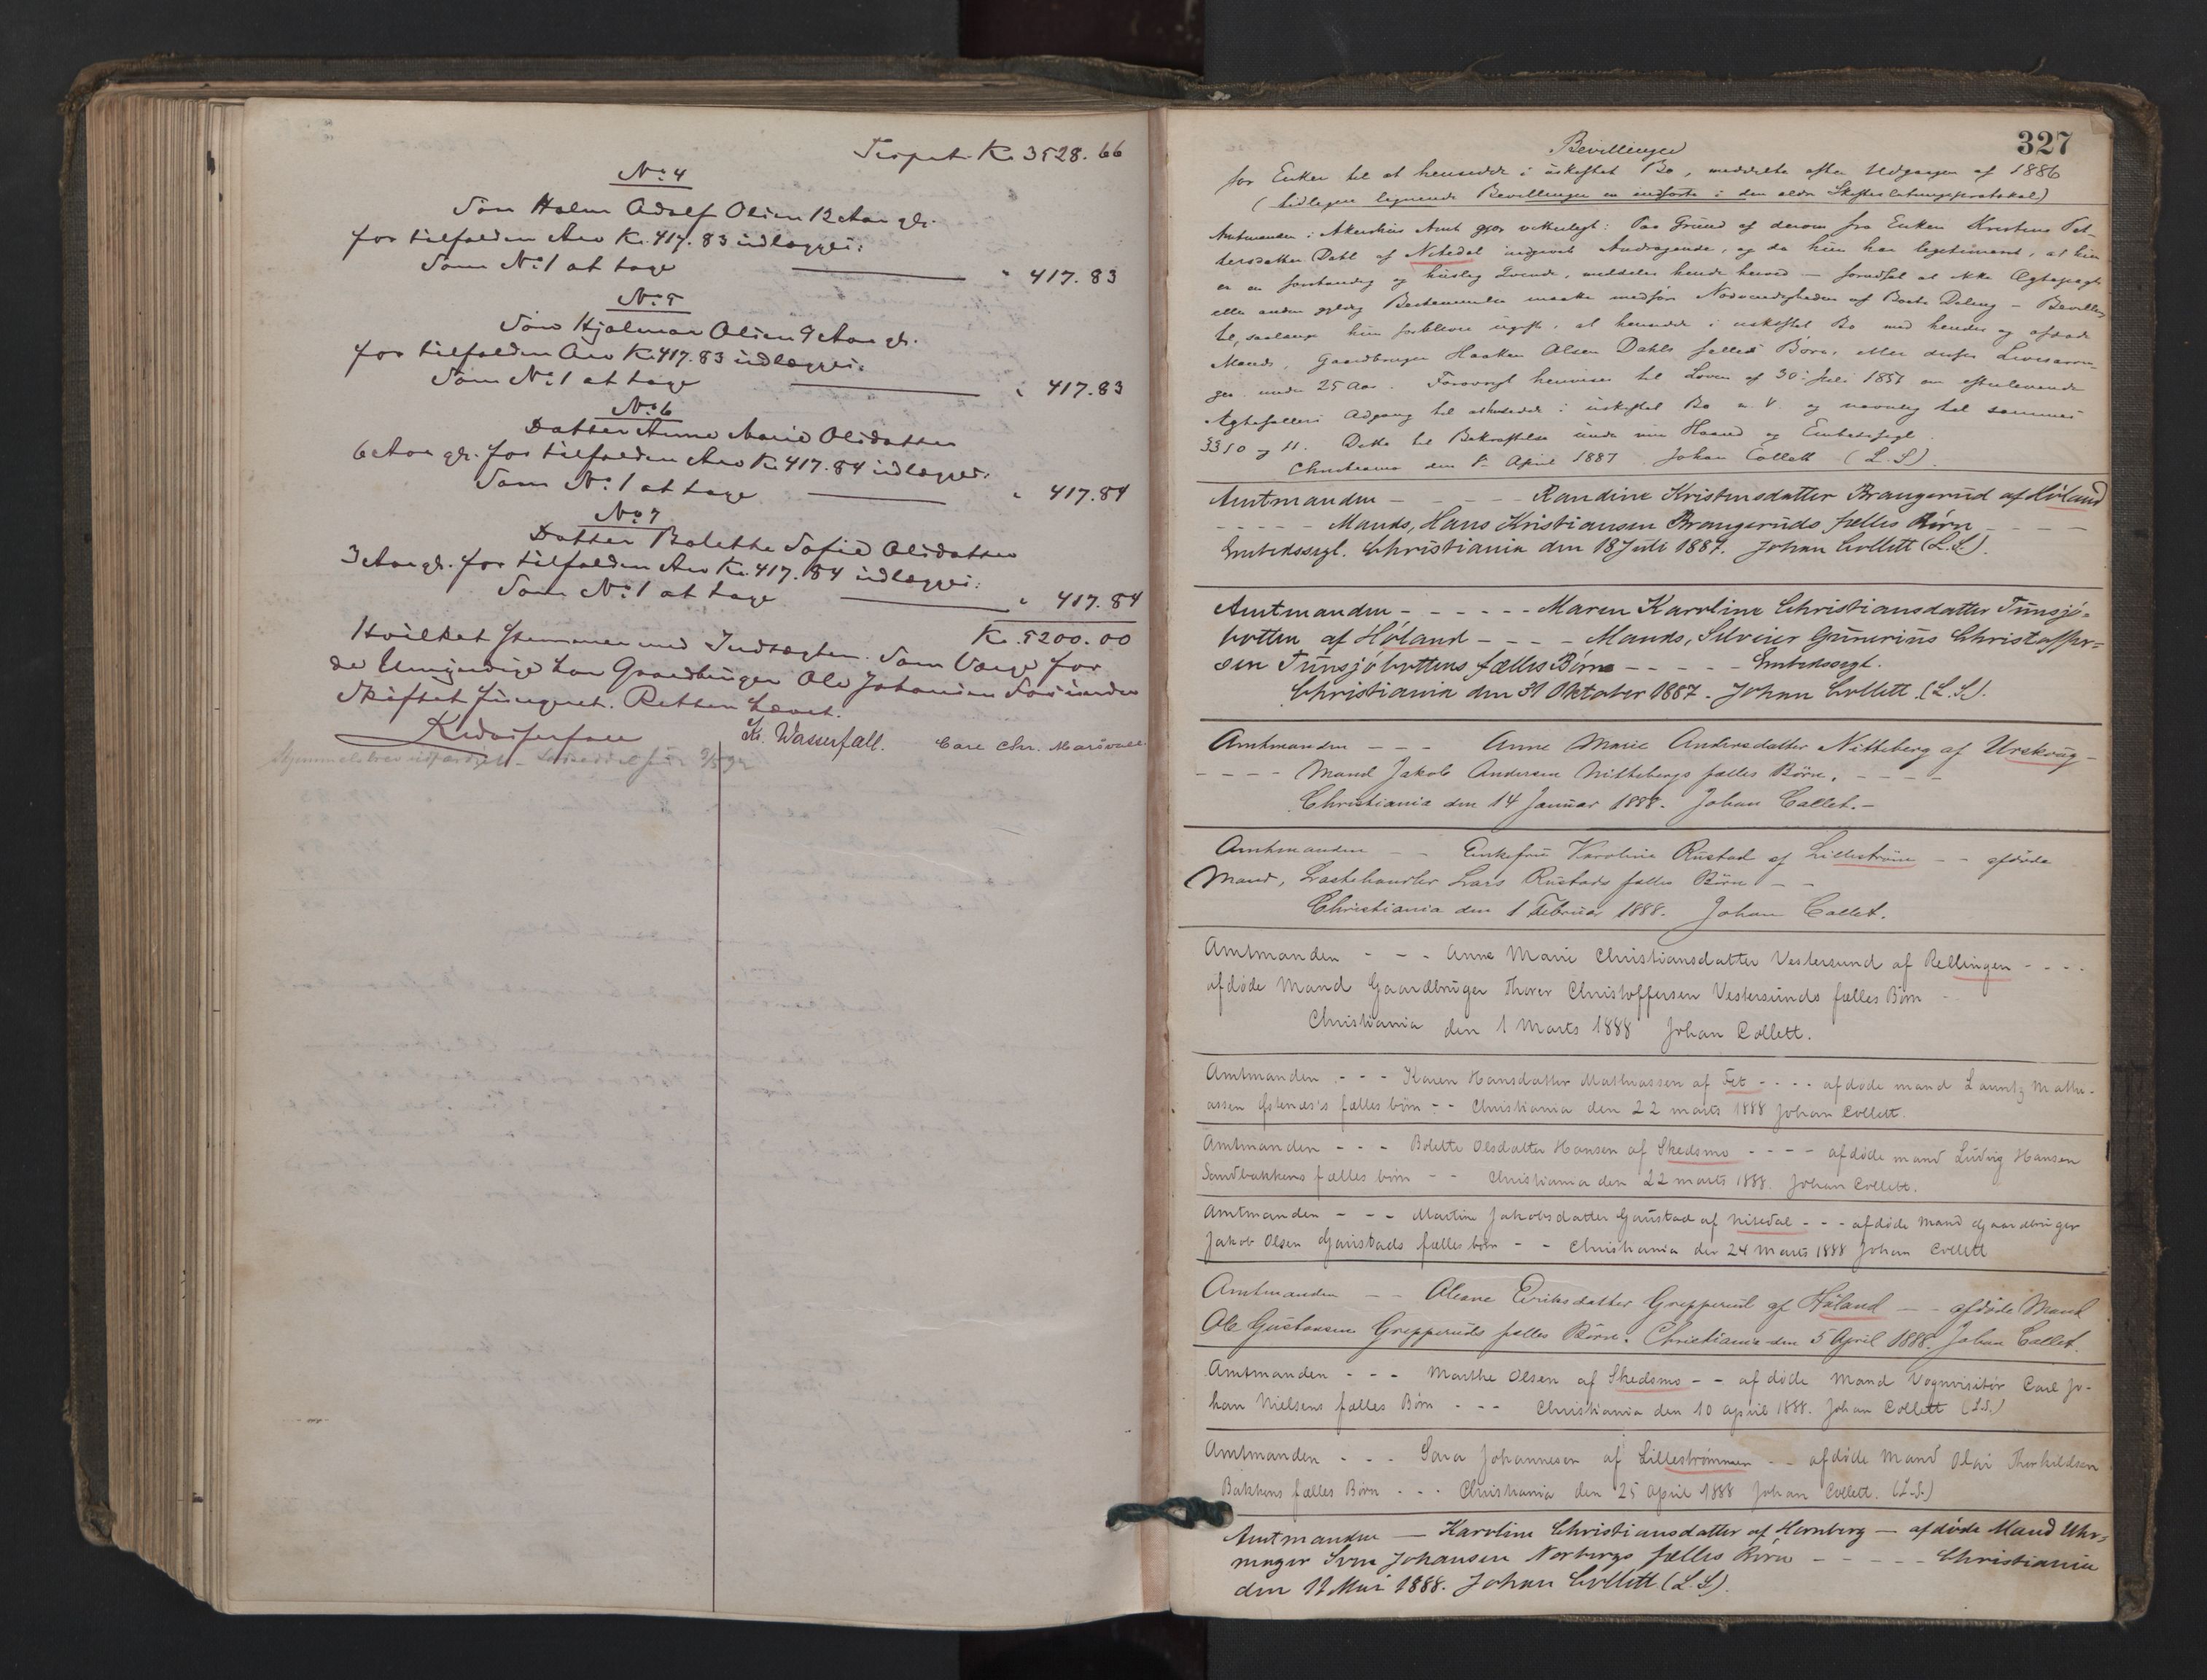 Transpt. Kr. 3528.66
No. 4
Søn Halm Adolf Olsen 12 Aar gl.
for tilfalden Arv Kr. 417.83 udlægges:
Som No. 1 at tage " 417.83
No. 5
Søn Hjalmar Olsen 9 Aar gl.
for tilfalden Arv Kr. 417.83 udlægges:
Som No. 1 at tage " 417.83
No. 6
Datter Anne Marie Olsdatter
6 Aar gl. for tilfalden Arv Kr. 417.84 udlægges:
Som No. 1 at tage " 417.84
No. 7
Datter Bolette Sofie Olsdatter
3 Aar gl. for tilfalden Arv Kr. 417.84 udlægges:
Som No. 1 at tage " 417.84
Kr. 5200.00
Hvilket stemmer med Indtægten. Som Værge for
de Umyndige har Gaardbruger Ole Johansen
Skiftet fungeret. Retten hævet.
Kr. Wasserfall. Carl Chr.
327
Bevillinger
for Enker til at hensidde i uskiftet Bo, meddelte efter Udgangen af 1886
(tidligere lignende Bevillinger er indførte i den ældre Skifteslutningsprotokol)
Amtmanden i Akershus Amt gjør vitterligt: Paa Grund af derom fra Enken Kristine Pet-
tersdatter Dahl af Nitedal indgivet Andragende, og da hun har legitimeret, at hun
er en forstandig og huslig Kvinde, meddeles hende herved – forudsat at ikke Ægtepagt
eller anden gyldig Bestemmelse maatte medføre Nødvendigheden af Boets Deling – Bevilling
til, saalænge hun forbliver ugift, at hensidde i uskiftet Bo med hendes og afdøde
Mands, Gaardbruger Haaken Olsen Dahls fælles Børn, eller disses Livsarvin-
ger under 25 Aar. Forøvrigt henvises til Loven af 30. Juli 1851 om efterlevende
Ægtefælles Adgang til at hensidde i uskiftet Bo m. V. og navnlig til sammes
§§ 10 og 11. Dette til Bekræftelse under min Haand og Embedssegl.
Christiania den 5. April 1887. Johan Collett (L.S.).
Amtmanden - - - - Randine Kristensdatter Brangerud af Høland
- - - - - Mands, Hans Kristiansen Brangeruds fælles Børn - - - -
Embedssegl. Christiania den 18 Juli 1887. Johan Collett (L.S.).
Amtmanden - - - - - - Maren Karoline Christiansdatter Tunsjø-
botten af Høland - - - - Mands, Silvius Gunerius Christoffer-
sen Tunsjøbottens fælles Børn - - - - - Embedssegl.
Christiania den 31 Oktober 1887. Johan Collett. (L.S.).
Amtmanden - - - Anne Marie Andersdatter Nitteberg af Urskoug -
- - - - Mand Jakob Andersen Nittebergs fælles Børn. - - - -
Christiania den 14 Januar 1888. Johan Collet. -
Amtmanden - - Enkefru Karoline Rustad af Lillestrøm - - afdøde
Mand, Lastehandler Lars Rustads fælles Børn - -
Christiania den 1 Februar 1888. Johan Collet.
Amtmanden - - - Anne Marie Christiansdatter Vestersund af Rellingen - - - -
afdøde Mand Gaardbruger Thorer Christoffersen Vestersunds fælles Børn -
Christiania den 1 Marts 1888 Johan Collett.
Amtmanden - - - Karen Hansdatter Mathiassen af Fet - - - - afdøde mand Lauritz Mathi-
assen Østenæs's fælles børn - - Christiania den 22 marts 1888 Johan Collett.
Amtmanden - - - Bolette Olsdatter Hansen af Skedsmo - - - - afdøde mand Ludvig Hansen
Sandbakkens fælles børn - - Christiania den 22 marts 1888. Johan Collett.
Amtmanden - - - Martine Jakobsdatter Gaustad af Nitedal - - - afdøde Mand Gaardbruger
Jakob Olsen Gaustads fælles børn - - Christiania den 24 Marts 1888 Johan Collett
Amtmanden - - Oleane Eriksdatter Grepperud af Høland - - afdøde Mand
Ole Gustavsen Grepperuds fælles Børn. Christiania den 5 April 1888. Johan Collet.
Amtmanden - - - Marthe Olsen af Skedsmo - - afdøde Mand Vognvisitør Carl Jo-
han Nielsens fælles Børn - - - Christiania den 10 april 1888. Johan Collett (L.S.)
Amtmanden - - - Sara Johannesen af Lillestrømmen - - afdøde Mand Olai Thorkildsen
Bakkens fælles Børn - - - Christiania den 25 april 1888 Johan Collett. (L.S.)
Amtmanden — Karoline Christiansdatter af Hernberg — afdøde Mand Uhr-
mager Sven Johansen Norbergs fælles Børn - - - - - Christiania
den 11 Mai 1888. Johan Collett (L.S.).